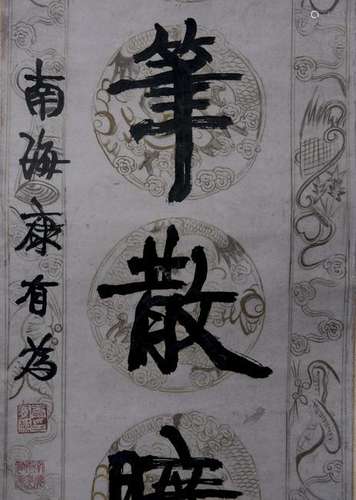 筆散
南海康有為